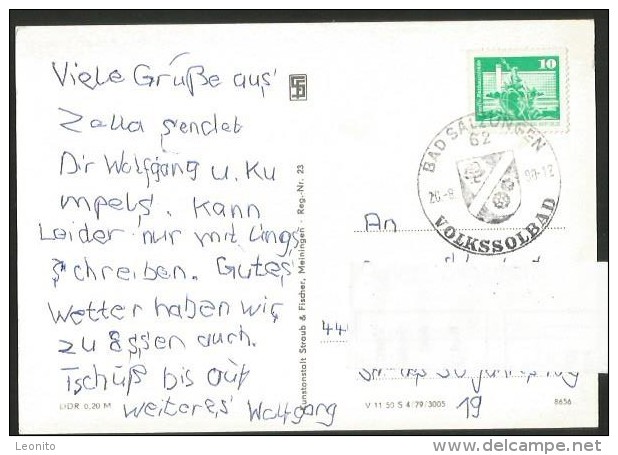 Viele Grüße aus
Zella sendet
Dir Wolfgang u. Ku
mpels. Kann
Leider nur mit Lings
schreiben. Gutes
Wetter haben wir
zu Essen auch.
Tschüß bis auf
weiteres Wolfgang
DDR 0,20 M
Kunstanstalt Straub & Fischer, Meiningen · Reg.-Nr. 23
10
BAD SALZUNGEN
62
VOLKSSOLBAD
An
44
19
V 11 50 S 4/79/3005
8656
Leonito
www.delcampe.net